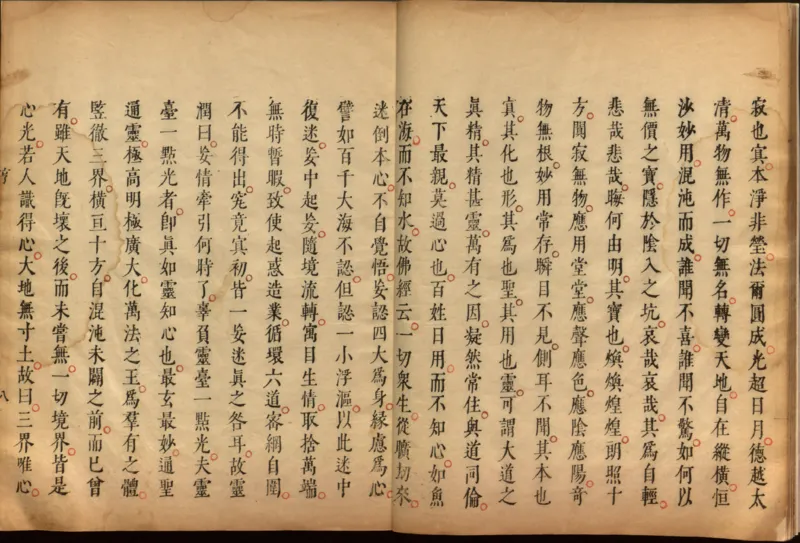 寂也㝠本淨非瑩法爾圓成光超日月德越太
清萬物無作一切無名轉變天地自在縱橫恒
沙妙用混沌而成誰聞不喜誰聞不驚如何以
無價之寶隱於陰入之坑哀哉哀哉其爲自輕
悲哉悲哉晦何由明其寶也煥煥煌煌朗照十
方闃寂無物應用堂堂應聲應色應陰應陽竒
物無根妙用常存瞬目不見側耳不聞其本也
㝠其化也形其爲也聖其用也靈可謂大道之
眞精其精甚靈萬有之因凝然常住與道同倫
天下最親莫過心也百姓日用而不知心如魚
在海而不知水故佛經云一切衆生從曠劫來
迷倒本心不自覺悟妄認四大爲身緣慮爲心
譬如百千大海不認但認一小浮漚以此迷中
復迷妄中起妄隨境流轉寓目生情取捨萬端
無時暫暇致使起惑造業循環六道密網自圍
不能得出究竟㝠初皆一妄迷眞之咎耳故靈
潤曰妄情牽引何時了辜負靈臺一點光夫靈
臺一點光者卽眞如靈知心也最玄最妙通聖
通靈極高明極廣大化萬法之王爲羣有之體
竪徹三界橫亘十方自混沌未闢之前而已曾
有雖天地旣壞之後而未嘗無一切境界皆是
心光若人識得心大地無寸土故曰三界唯心
八